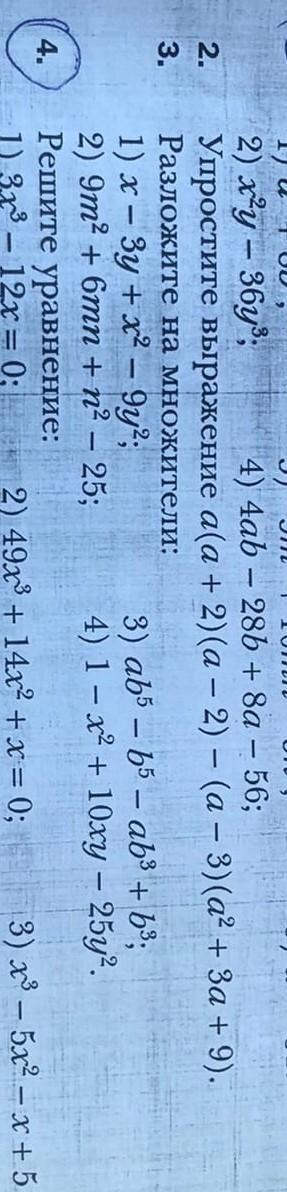 2) x²y – 36y³; 4) 4ab – 28b + 8a – 56;
2. Упростите выражение a(a + 2)(a – 2) – (a – 3)(a² + 3a + 9).
3. Разложите на множители:
1) x – 3y + x² – 9y²; 3) ab⁵ – b⁵ – ab³ + b³;
2) 9m² + 6mn + n² – 25; 4) 1 – x² + 10xy – 25y².
4. Решите уравнение:
1) 3x³ – 12x = 0; 2) 49x³ + 14x² + x = 0; 3) x³ – 5x² – x + 5